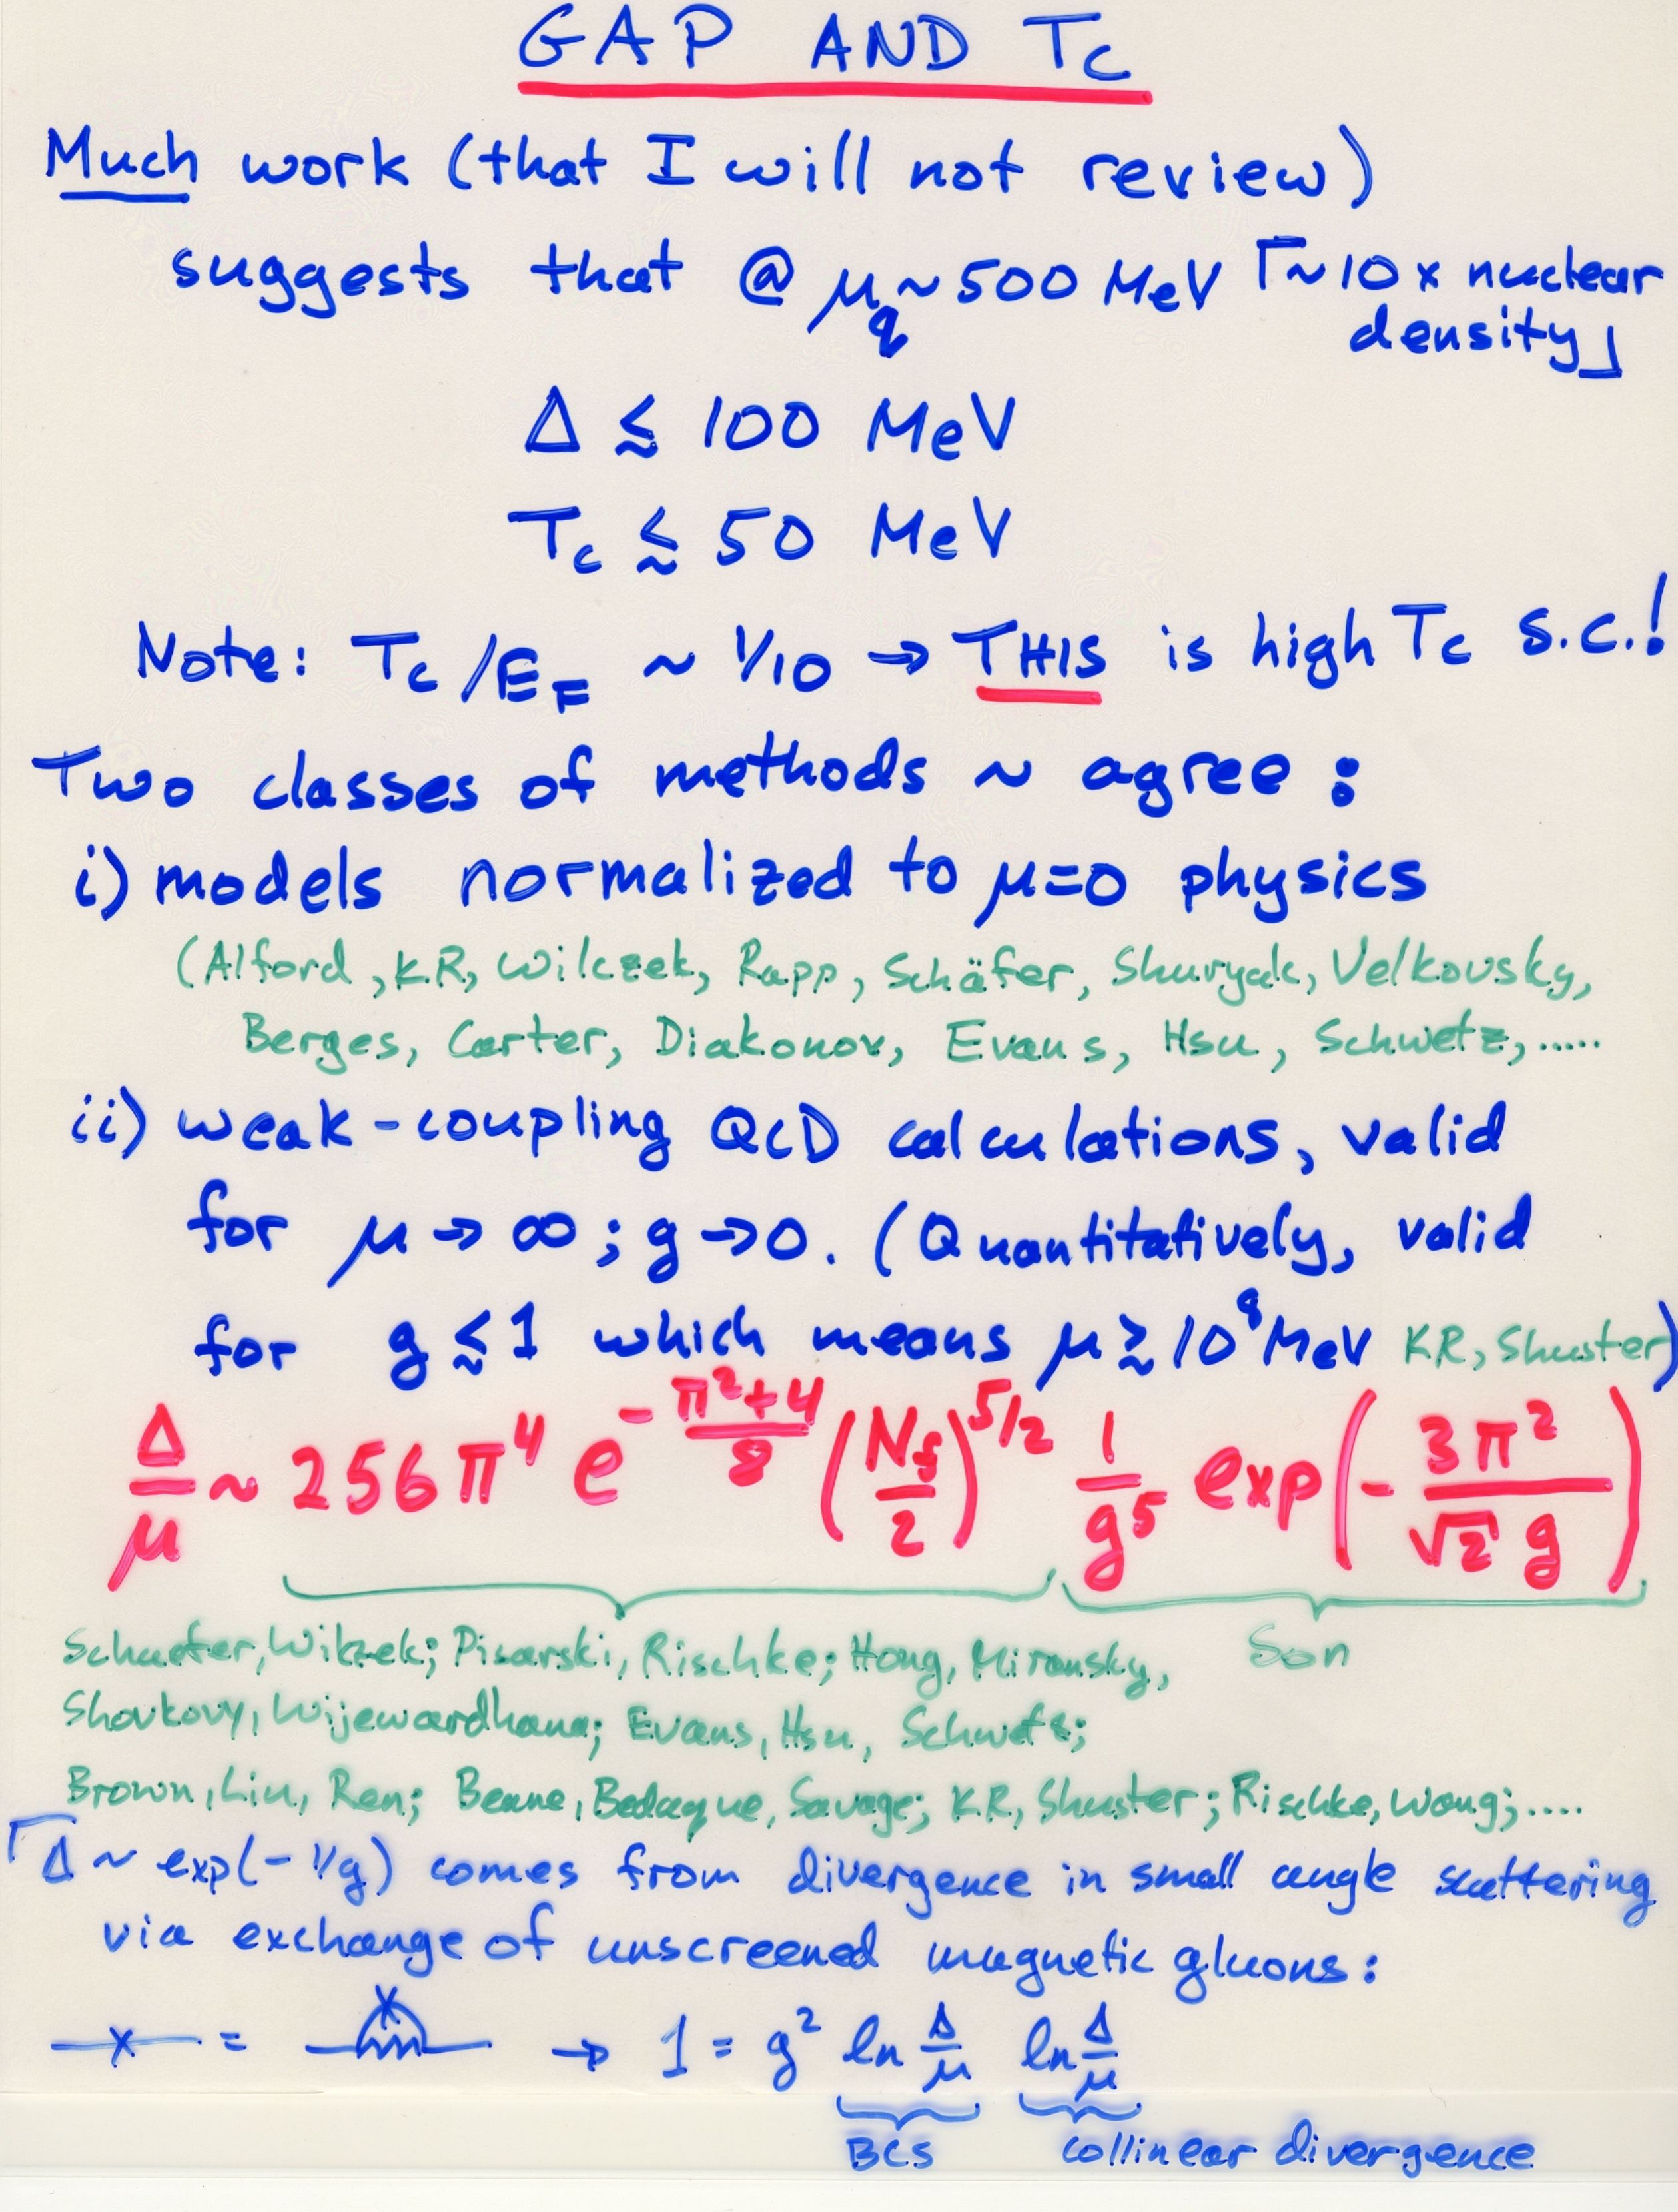 GAP AND Tc
Much work (that I will not review)
suggests that @ μq ~ 500 MeV ⌈~10 x nuclear
density⌋
Δ ≲ 100 MeV
Tc ≲ 50 MeV
Note: Tc/EF ~ 1/10 → THIS is high Tc s.c.!
Two classes of methods ~ agree :
i) models normalized to μ=0 physics
(Alford, KR, Wilczek, Rapp, Schäfer, Shuryak, Velkovsky,
Berges, Carter, Diakonov, Evans, Hsu, Schwetz, .....
ii) weak-coupling QCD calculations, valid
for μ → ∞ ; g → 0. (Quantitatively, valid
for g ≲ 1 which means μ ≳ 10^8 MeV KR, Shuster)
Δ/μ ~ 256 π^4 e^(-(π^2+4)/8) (Nf/2)^(5/2) 1/g^5 exp(- 3π^2/(√2 g))
Schaefer, Wilczek; Pisarski, Rischke; Hong, Miransky, Son
Shovkovy, Wijewardhana; Evans, Hsu, Schwetz;
Brown, Liu, Ren; Beane, Bedaque, Savage; KR, Shuster; Rischke, Wang; ....
⌈Δ ~ exp(- 1/g) comes from divergence in small angle scattering
via exchange of unscreened magnetic gluons:
x = x → 1 = g^2 ln Δ/μ ln Δ/μ
BCS collinear divergence